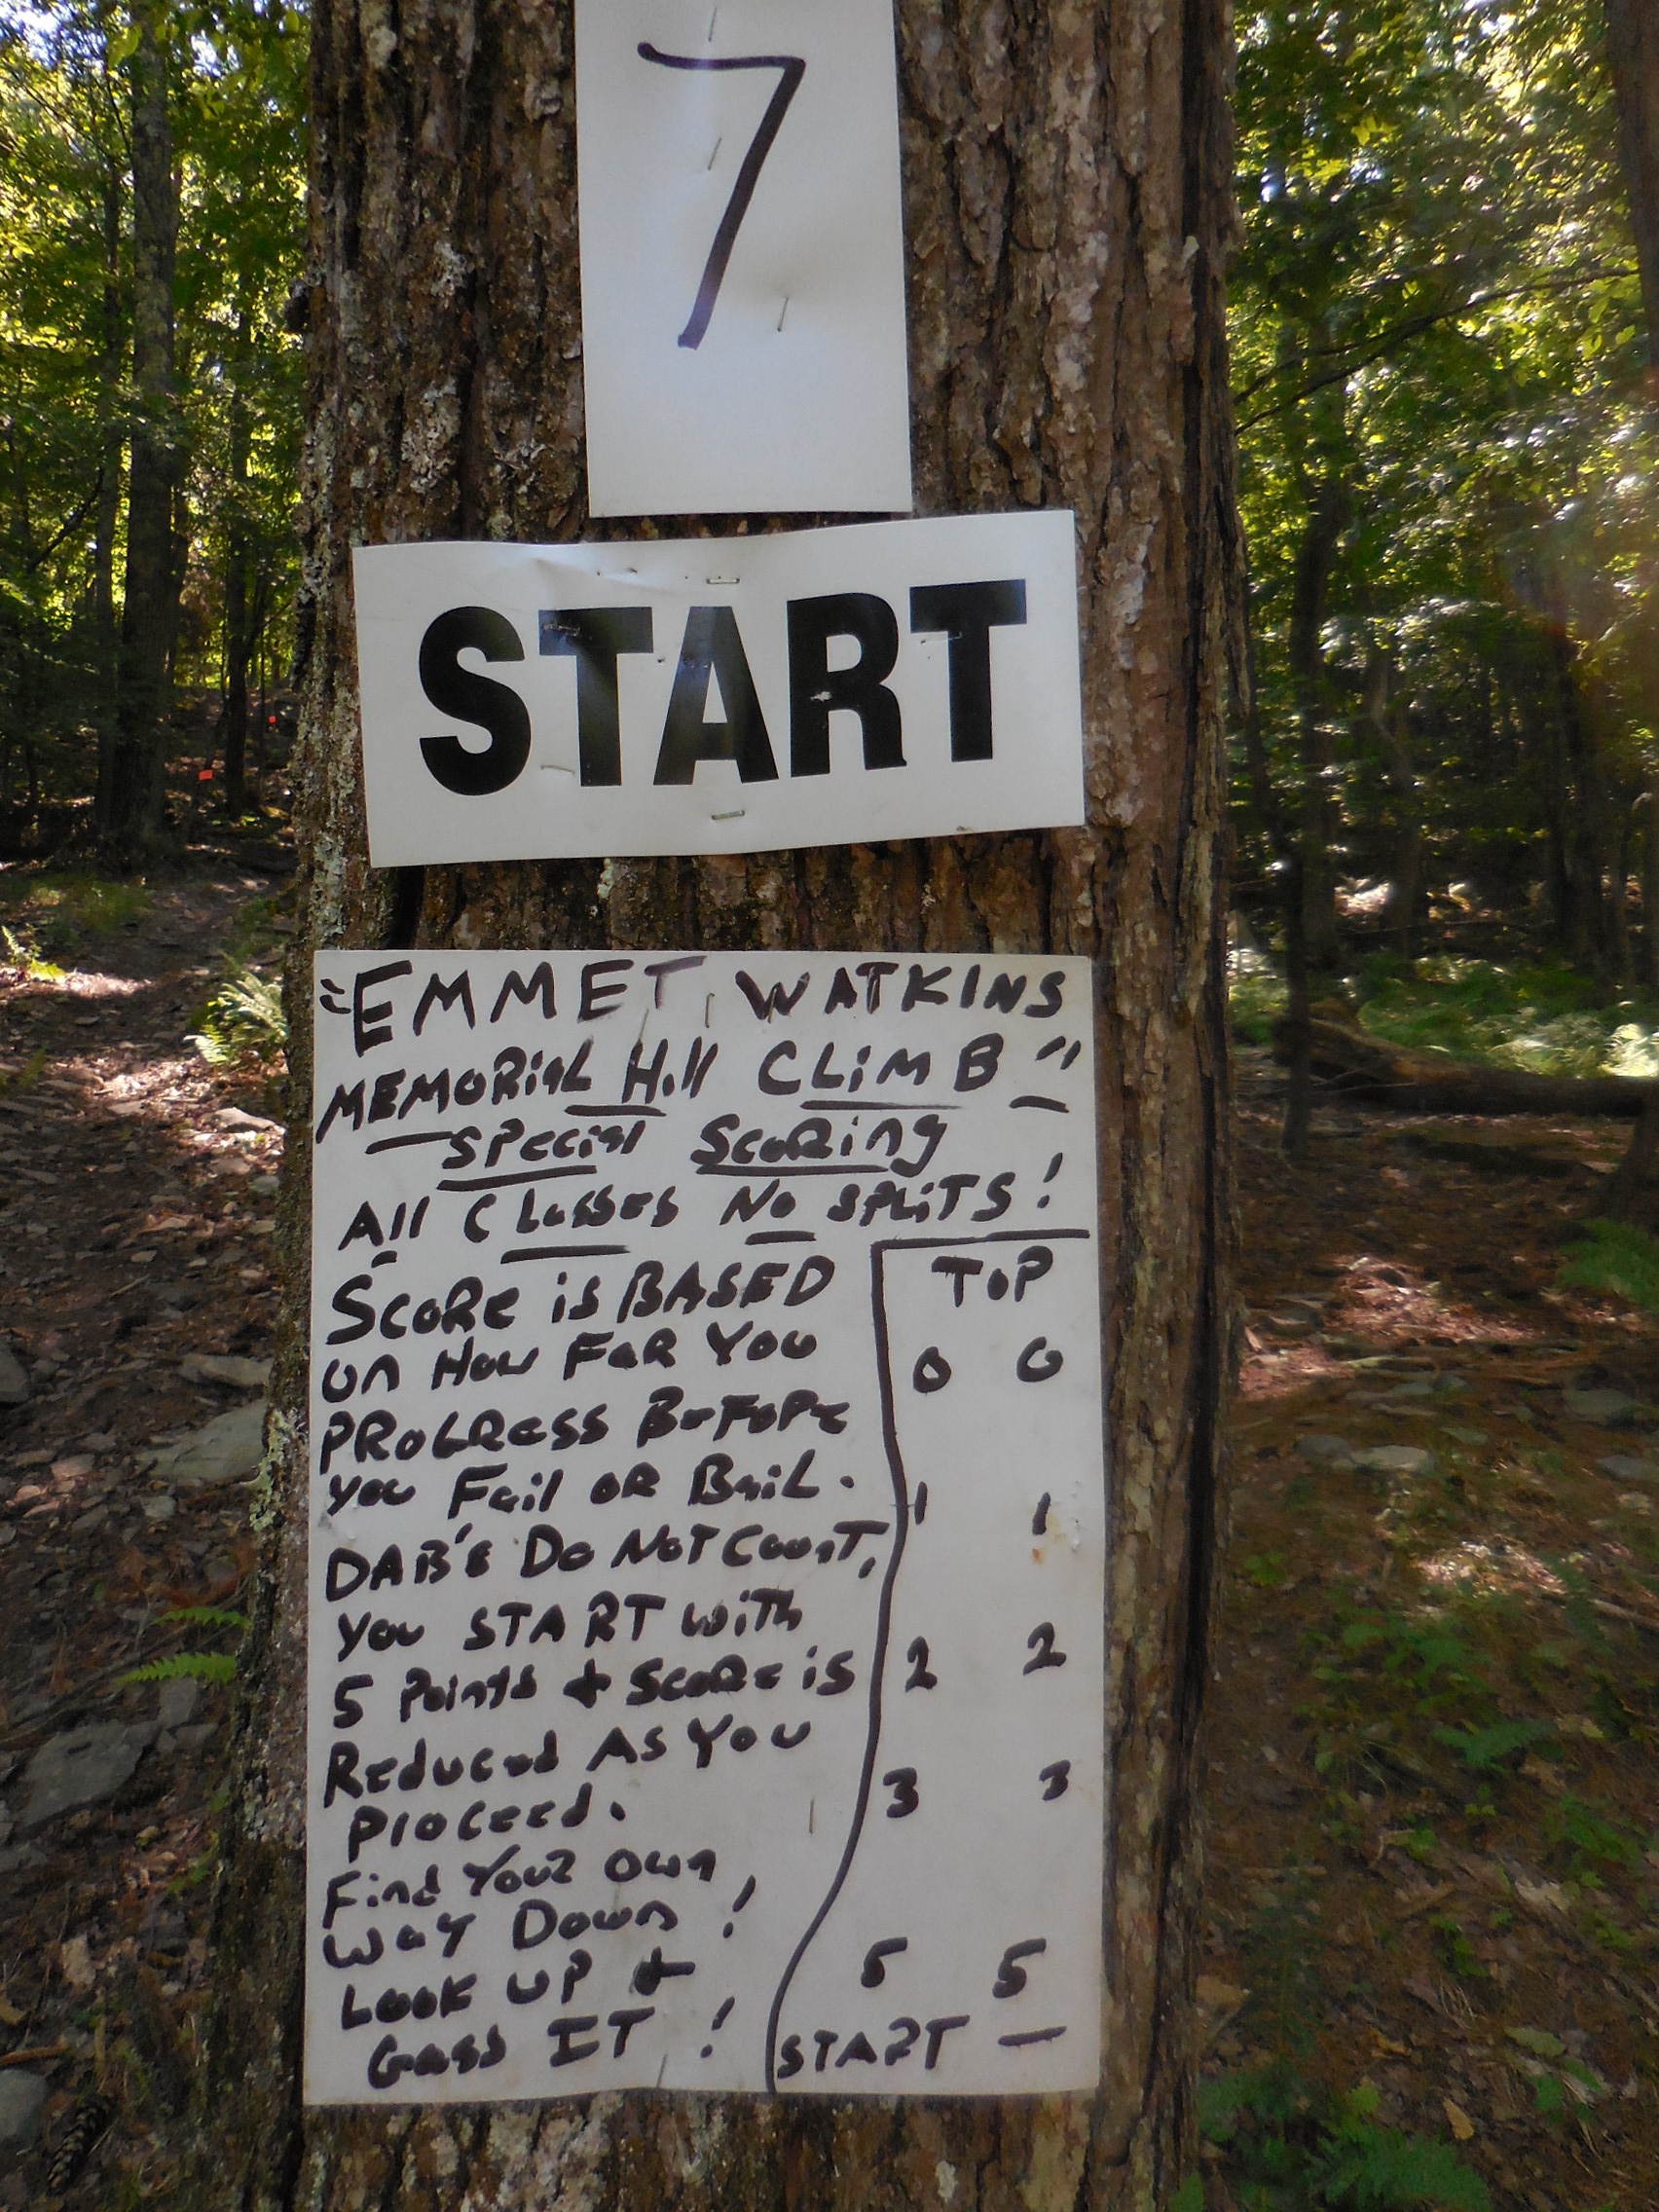 7
START
"EMMET WATKINS
MEMORIAL Hill CLiMB"
SPECIAL SCORing
All CLASSES NO SPLiTS!
SCORE is BASED
on How FAR YOU
PROGRESS BEFORE
you Fail OR BAiL.
DAB'S DO NOT COUNT,
you START WiTh
5 Points + Score is
Reduced AS YOU
Proceed.
Find Your own
WAY Down!
Look UP +
Gass IT!
TOP
0 0
1 1
2 2
3 3
5 5
START —